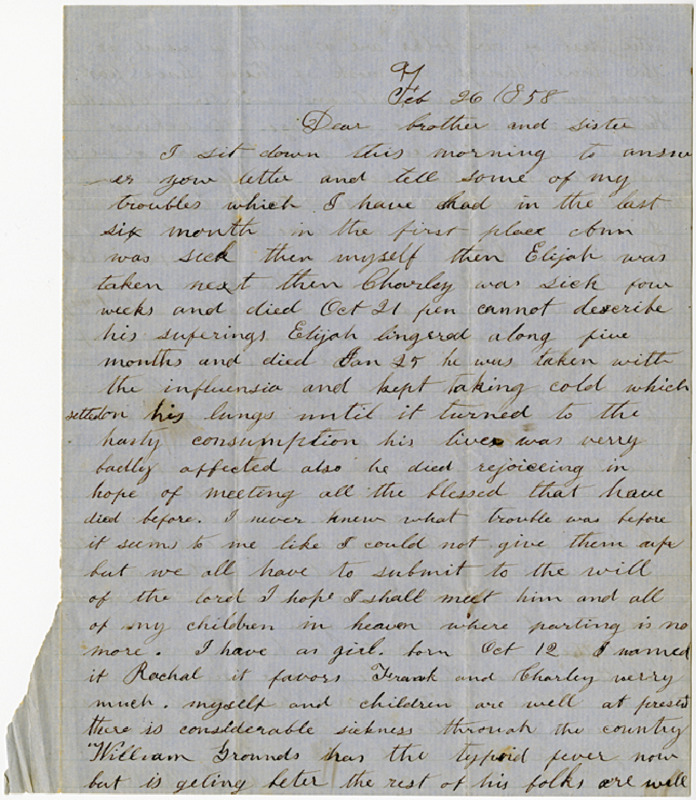 Feb 26 1858
Dear brother and sister
I sit down this morning to answ
er your letter and tell some of my
troubles which I have had in the last
six month in the first place
was sick then myself then Elijah was
taken next then Charley was sick four
weeks and died Oct 21 pen cannot describe
his suferings Elijah lingerd along five
months and died Jan 25 he was taken with
the influensia and kept taking cold which
setledon his lungs until it turned to the
hasty consumption his liver was verry
badly affected also he died rejoiceing in
hope of meeting all the blessed that have
died before. I never knew what trouble was before
it seems to me like I could not give them up
but we all have to submit to the will
of the lord I hope I shall meet him and all
of my children in heaven where parting is no
more. I have as girl. born Oct 12 I named
it Rachal it favors Frank and Charley verry
much. myself and children are well at preset
there is considerable sickness through the country
William Grounds has the typoid fever now
but is geting beter the rest of his folks are well